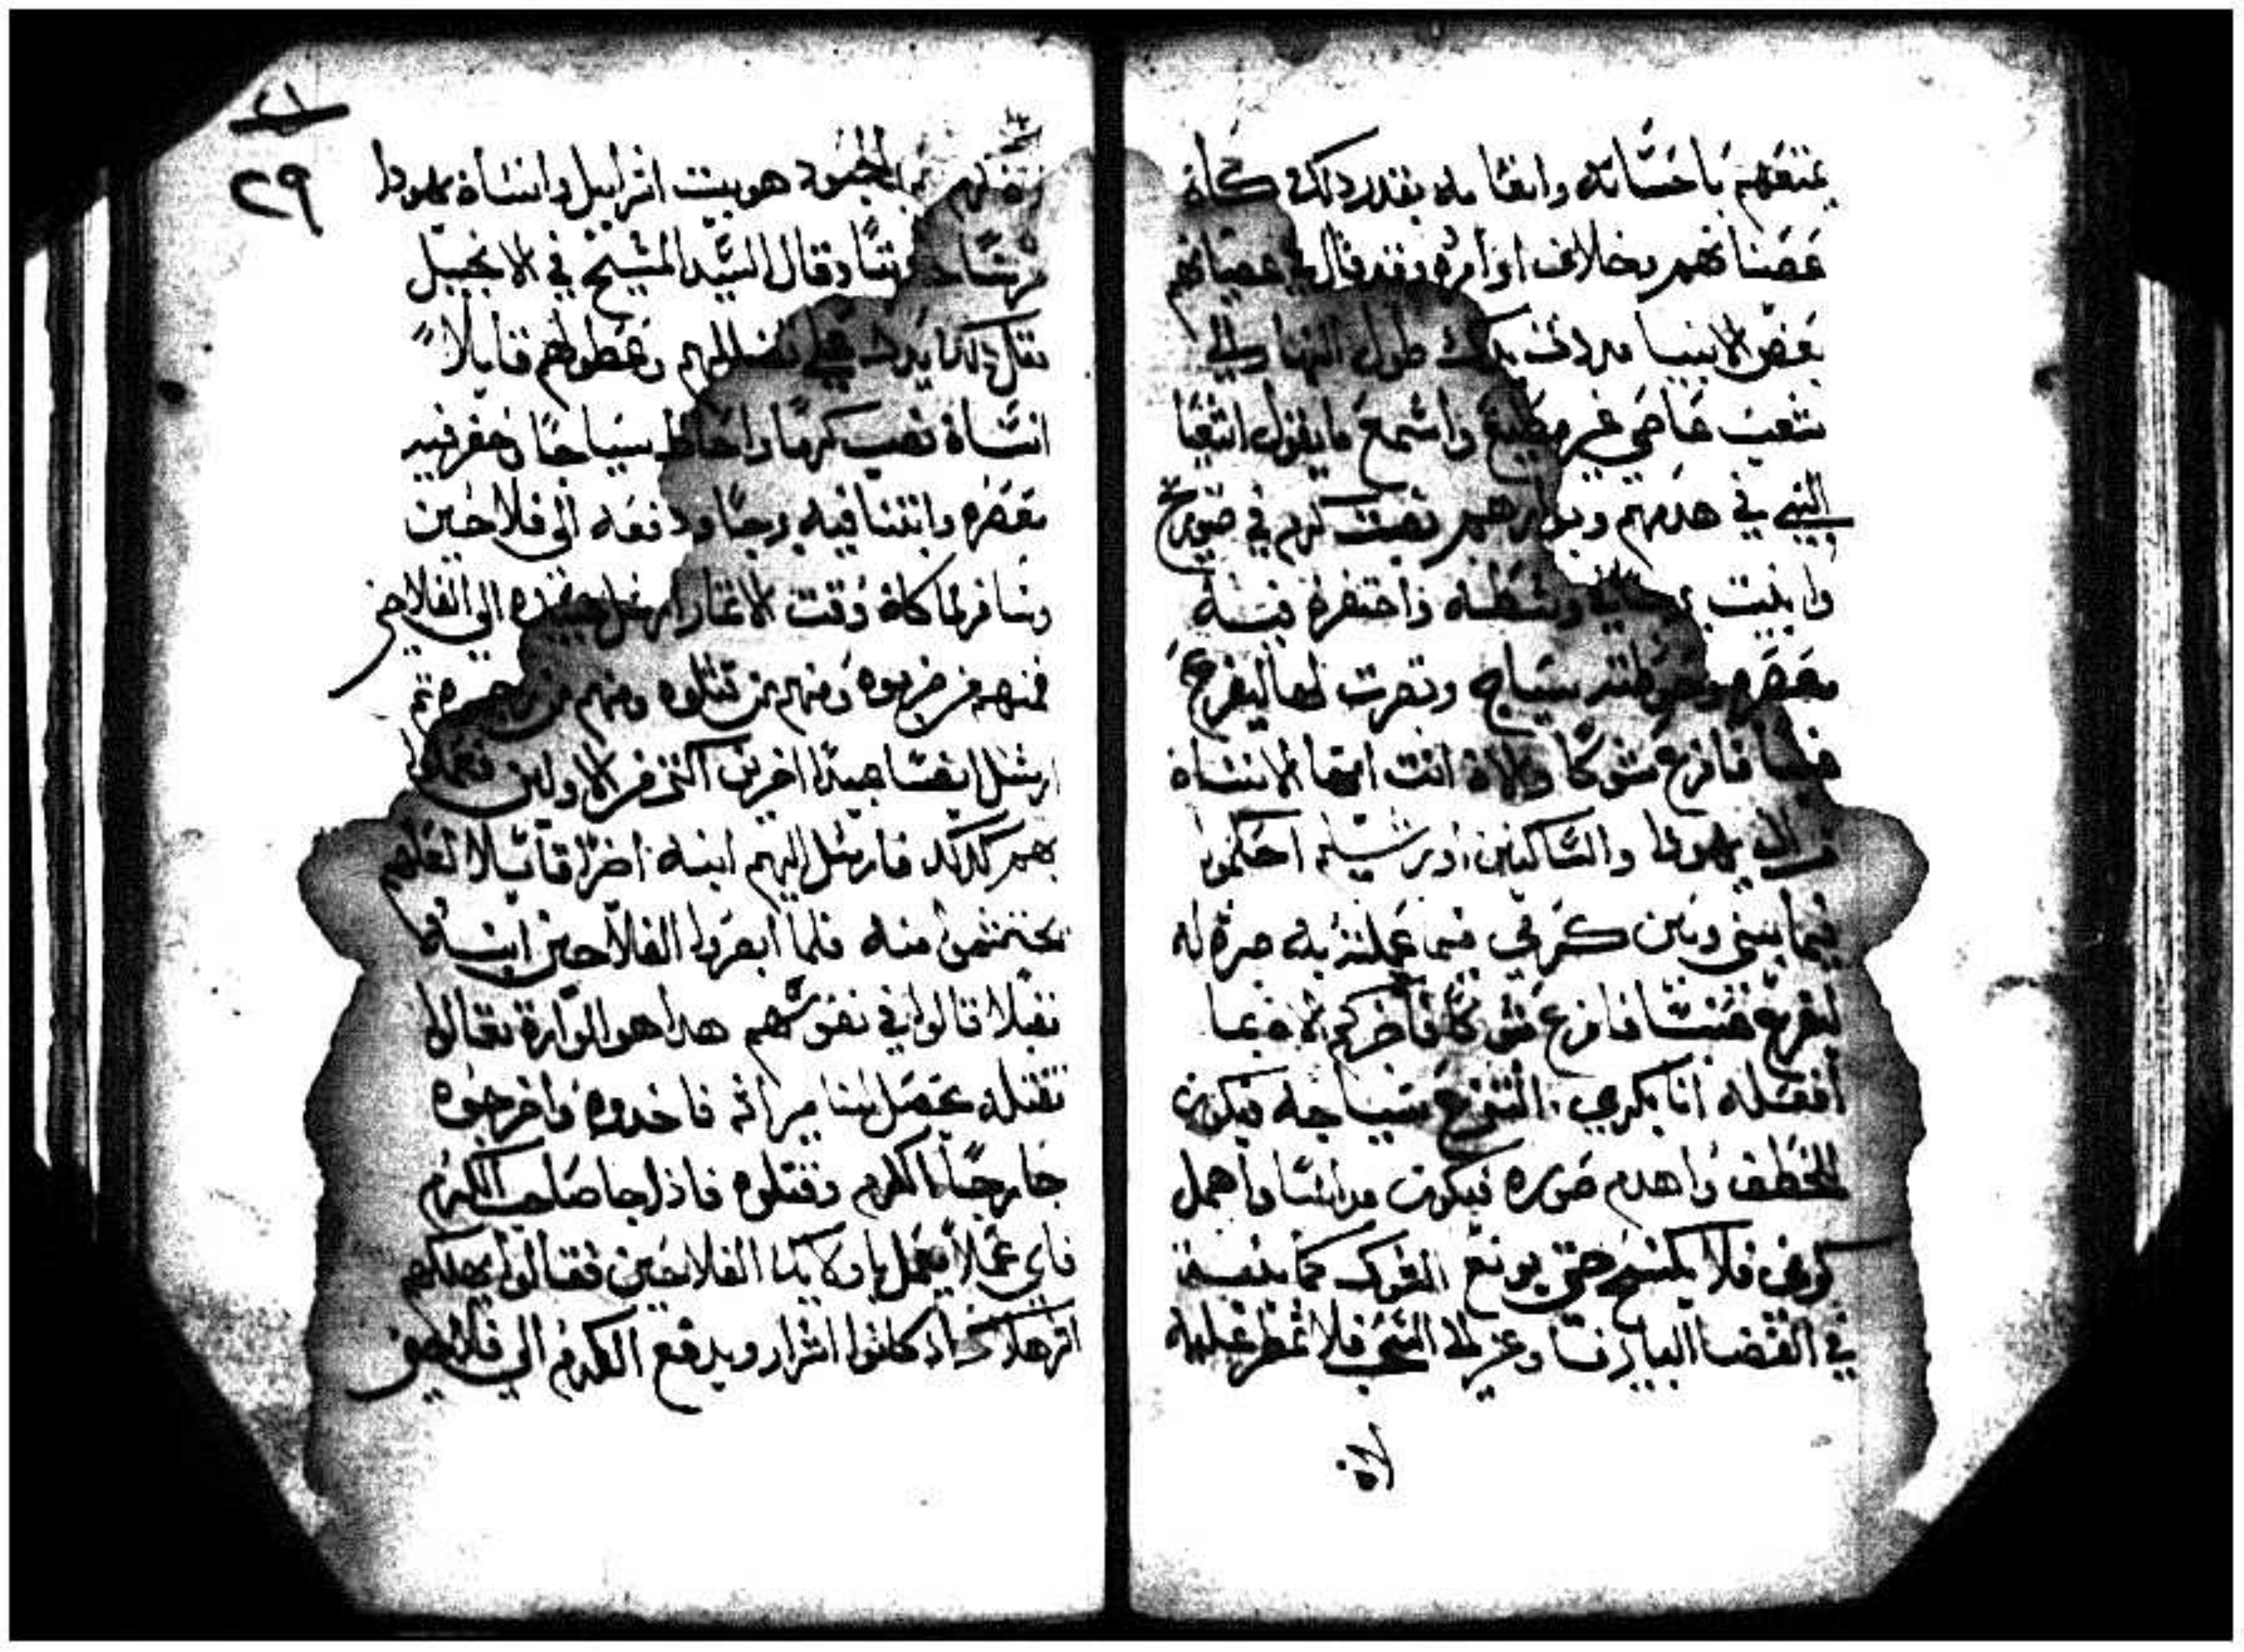 يمتعهم باحسانه وانعامه بقدر ذلك كان
عصيانهم بخلاف اوامره وقد قال في عصيانهم
بعض الانبيا مددت يدك طول النهار الى
شعب عاصي غير مطيع واسمع ما يقول اشعيا
النبي في هدمهم وبوارهم نصبت كرم في ضويح
وابنيت وسطه واحتفرة فيه
معصره وحوطته بسياج وتصرت لها ليفرع
فلما فافرع شوكا والان انت ايها الانسان
يهودا والساكنين اورشليم احكموا
فيما بيني وبين كرمي فيما عملته به صرة له
ليفرع عنبا فافرع شوكا فاخركم الان بما
افعله انا بكرمي انتزع سياجه فيكون
للخطف واهدم صوره فيكون مداسا واهمل
كرمي فلا يكسح حتى يونع الشوك كما ينبت
في الفضا البايرنا وعز الى السحب فلا تمطر عليه
لان
٢١
٢٩
هو بيت اسراييل وانسان يهودا
وقال السيد المسيح في الانجيل
ضلالهم وعطولهم قايلا
انسان نصب كرما واحاط سياجا وحفر فيه
معصره وابتنا فيه برجا ودفعه الى فلاحين
وسافر لما كان وقت الاثمار ارسل عبيده الى الفلاحين
فمنهم من ضربوه ومنهم من قتلوه ومنهم من رجموه ثم
ارسل ايضا عبيدا اخرين اكثر من الاولين فعملوا
بهم كذلك فارسل اليهم ابنه اخرا قايلا لعلهم
يحتشموا منه فلما ابصروا الفلاحين ابنه
مقبلا قالوا في نفوسهم هدا هو الوارة تعالوا
نقتله يحصل لنا ميراثه فاخدوه واخرجوه
خارجا الكرم وقتلوه فاذا جا صاحب الكرم
فاي عملا يعمل باولايك الفلاحين فقالوا يهلكهم
اشر هلاك اذ كانوا اشرار ويدفع الكرم الي فلاحين